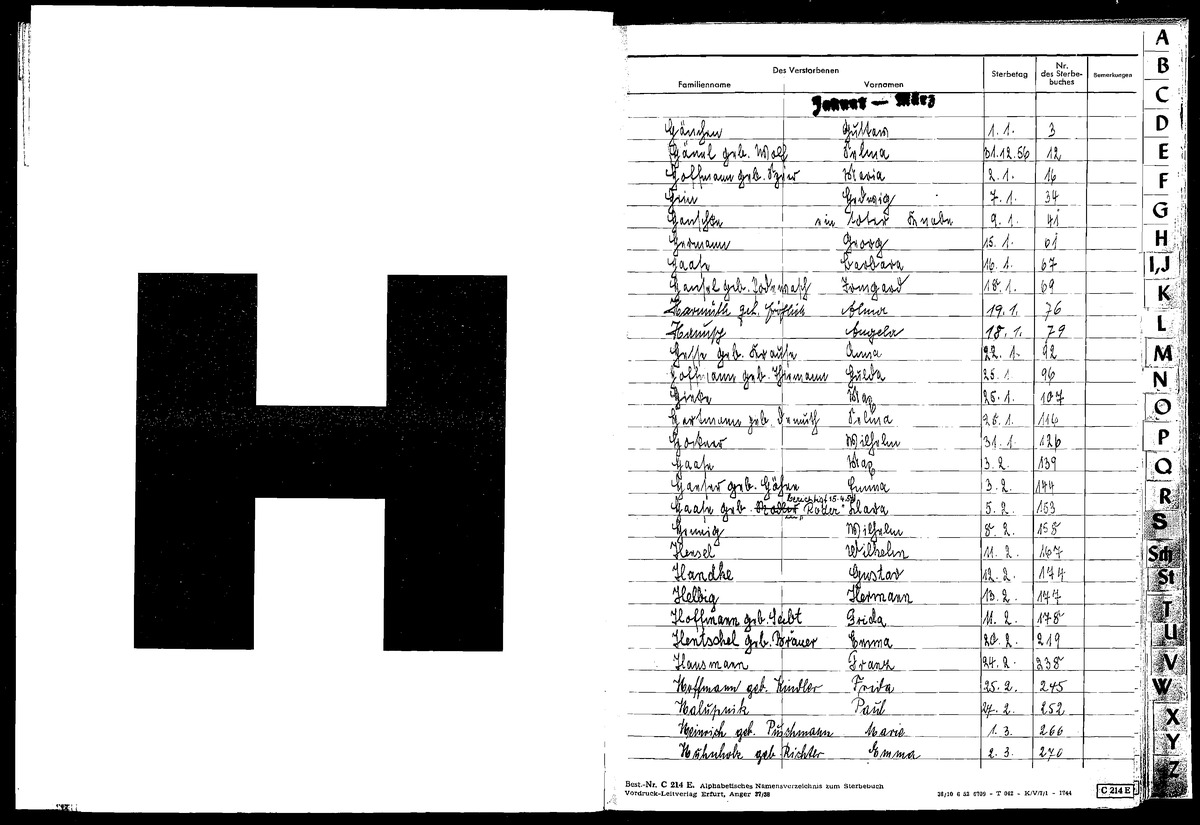 H
Des Verstorbenen
Familienname Vornamen Sterbetag Nr. des Sterbebuches Bemerkungen
Januar — März
Hänchen Gustav 1.1. 3
Hänel geb. Wolf Selma 31.12.56 12
Hoffmann geb. Maria 2.1. 16
Hein Hedwig 7.1. 34
Hanschke ein toter Knabe 9.1. 41
Hermann Georg 15.1. 61
Haase Barbara 16.1. 67
Hensel geb. Irmgard 18.1. 69
Harmuth geb. Fröhlich Alma 19.1. 76
Hanusch Angela 18.1. 79
Hesse geb. Krause Anna 22.1. 92
Hoffmann geb. Thiemann Hulda 25.1. 96
Max 25.1. 107
Hartmann geb. Demuth Selma 25.1. 116
Wilhelm 31.1. 126
Haase Max 3.2. 139
geb. Emma 3.2. 144
berichtigt 15.4.57
Haase geb. "Rotter" Klara 5.2. 153
Hennig Wilhelm 8.2. 158
Hensel Wilhelm 11.2. 167
Handke Gustav 12.2. 174
Helbig Hermann 13.2. 177
Hoffmann geb. Seibt Frida 11.2. 178
Hentschel geb. Bräuer Emma 20.2. 219
Hausmann Franz 24.2. 238
Hoffmann geb. Kindler Frida 25.2. 245
Halupnik Paul 27.2. 252
Heinrich geb. Puschmann Marie 1.3. 266
Huhnholz geb. Richter Emma 2.3. 270
Best.-Nr. C 214 E. Alphabetisches Namensverzeichnis zum Sterbebuch
Vordruck-Leitverlag Erfurt, Anger 37/38
C 214 E
A
B
C
D
E
F
G
H
I,J
K
L
M
N
O
P
Q
R
S
Sch
St
T
U
V
W
X
Y
Z